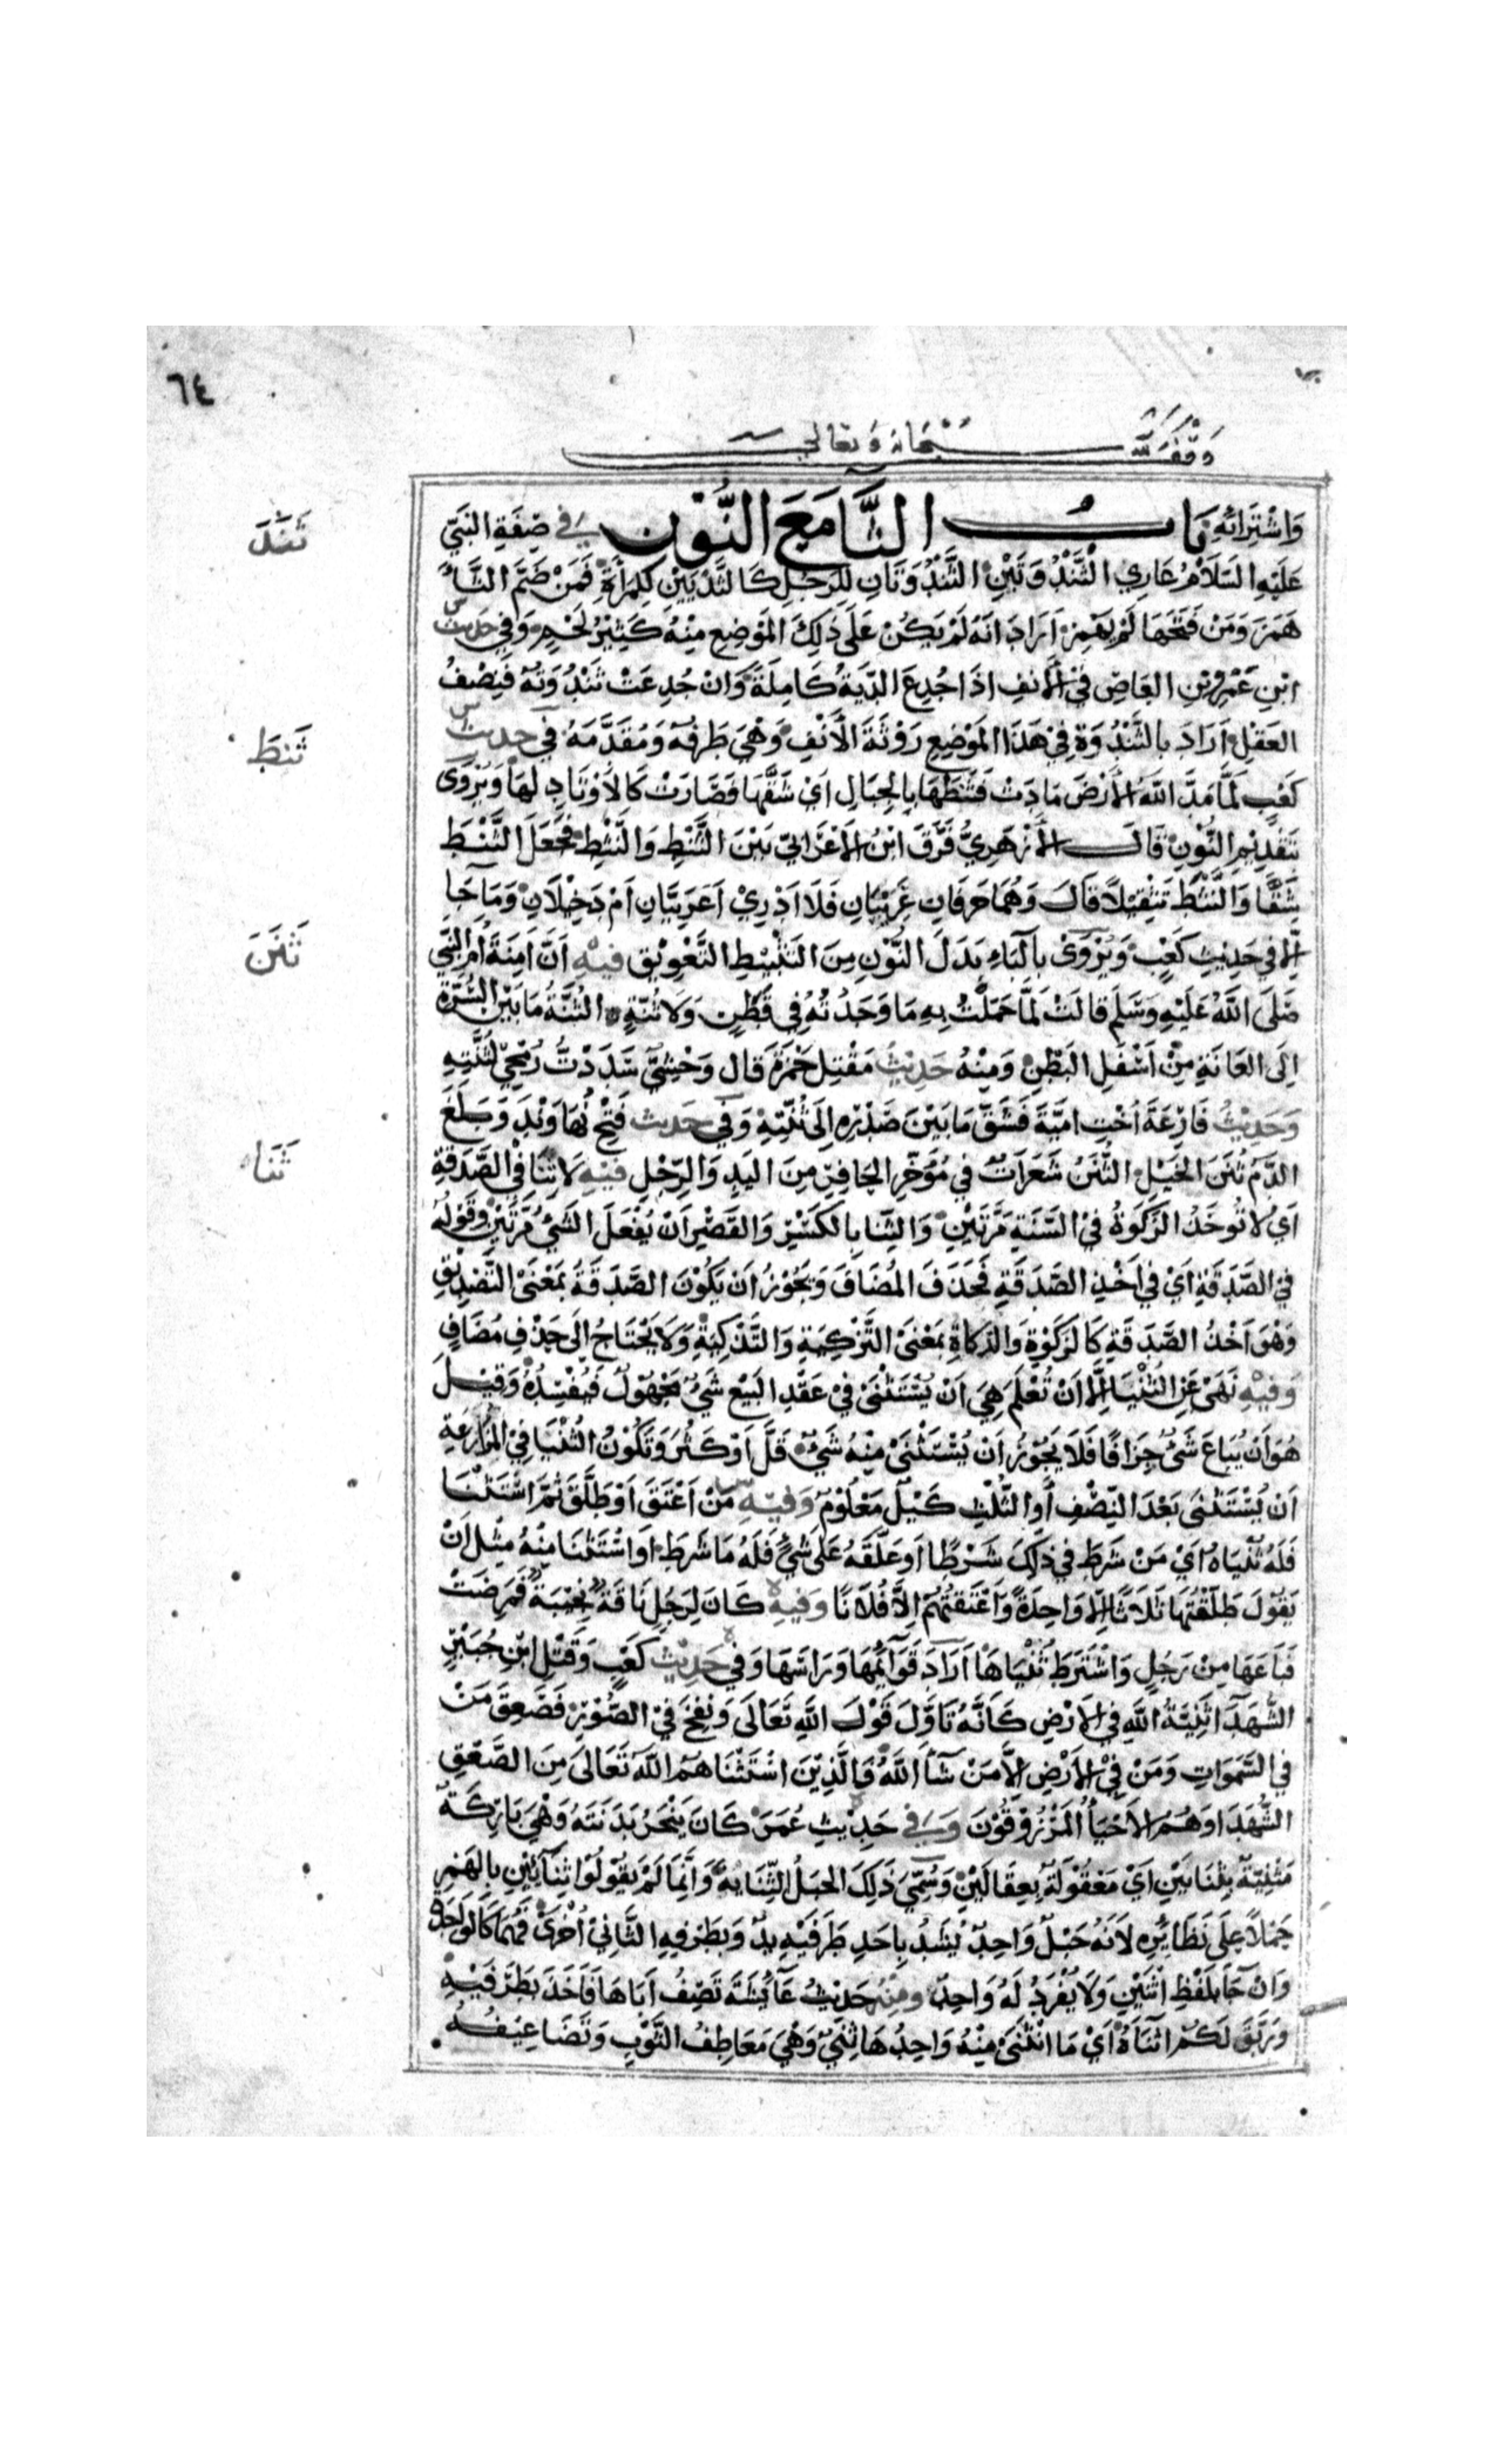 ٦٤
وقف لله سبحانه وتعالى
وَاشْتِرَائِهِ بَابُ الثَّا مَعَ النُّوْنِ في صِفَةِ النَّبِيّ
ثَنَدَ
عَلَيْهِ السَّلَامُ عَارِي الثَّنْدُوَتَيْنِ الثَّنْدُوَتَانِ لِلرَّجُلِ كَالثَّدْيَيْنِ لِلمَرْأَةِ فَمَنْ ضَمَّ الثَّاءَ
هَمَزَ وَمَنْ فَتَحَهَا لَمْ يَهْمِزْ اَرَادَ اَنَّهُ لَمْ يَكُنْ عَلَى ذَلِكَ المَوْضِعِ مِنْهُ كَثِيْرُ لَحْمٍ وَفي حَدِيث
ابْنِ عَمْرِو بْنِ العَاصِ في الأنفِ اذَا جُدِعَ الدِّيَةُ كَامِلَةً وَانْ جُدِعَتْ ثَنْدُوَتُهُ فَنِصْفُ
العَقْلِ اَرَادَ بِالثَّنْدُوَةِ في هَذَا المَوْضِعِ رَوْثَةَ الأَنْفِ وَهْيَ طَرَفُهُ وَمُقَدَّمَهُ في حديث
ثَنَطَ
كَعْبٍ لَمَّا مَدَّ اللهُ الأَرْضَ مَادَتْ فَثَنَطَهَا بِالجِبَالِ اَيْ شَقَّهَا فَصَارَتْ كَالأَوْتَادِ لَهَا وَيُرْوَى
بَتَقْدِيْمِ النُّوْنِ قَالَ الأزْهَرِيُّ فَرَّقَ ابْنُ الأعْرَابيّ بَيْنَ الثَّنْطِ وَالنَّثْطِ فَجَعَلَ الثَّنْطَ
شَقًّا وَالنَّثْطَ تَثْقِيْلًا قَالَ وَهُمَا حَرفَانِ غَرِيْبَانِ فَلَا اَدْرِيْ اَعَرَبِيَّانِ اَمْ دَخِيْلَانِ وَمَا جَا
اِلَّا في حَدِيْثِ كَعْبٍ وَيُرْوَى بِالبَاءِ بَدَلَ النُّوْنِ مِنَ التَثْبِيْطِ التَّعْوِيْقِ فيهِ اَنَّ اَمِنَةَ اُمَّ النَّبِيّ
ثَنَنَ
صَلَى اللهُ عَلَيْهِ وَسَلَّمَ قَالَتْ لَمَّا حَمَلْتُ بِهِ مَا وَجَدْتُهُ في قَطَنٍ وَلَا ثُنَّةٍ الثُّنَّةُ مَا بَيْنَ السُّرَّةِ
اِلَى العَانَةِ مِنْ اَسْفَلِ البَطْنِ وَمِنْهُ حَدِيْثُ مَقْتَلِ حَمْزَةَ قَالَ وَحْشِيٌّ سَدَدْتُ رُمْحِي لِثُنَّتِهِ
وَحَدِيْثُ فَارِعَةَ اُخْتِ اميَّةَ فَشَقَّ مَا بَيْنَ صَدْرِهِ اِلَى ثُنَّتِهِ وَفي حَديث فَتْحِ نُهَاوَنْدَ وَبَلَغَ
الدَّمُ ثُنَنَ الخَيْلِ الثُّنَنُ شَعَرَاتٌ في مُؤَخَّرِ الحَافِرِ مِنَ اليَدِ وَالرِّجْلِ فيْهِ لَا ثِنَا في الصَّدَقَةِ
ثَنَاه
اَيْ لَا تُوخَذُ الزَكَوةُ في السَّنَةِ مَرَّتَيْنِ وَالثِّنَا بِالكَسْرِ وَالقَصْرِ اَنْ يُفْعَلَ الشَيْءُ مَرَّتَيْنِ وَقَوْلُهُ
في الصَّدَقَةِ اَيْ في اَخْذِ الصَّدَقَةِ فَحَذَفَ المُضَافَ وَيَجُوْزُ اَنْ يَكُوْنَ الصَّدَقَةُ بِمَعْنَى التَّصْدِيْقِ
وَهْوَ اَخْذُ الصَّدَقَةِ كَالزَكَوْةِ وَالذَكَاةِ بِمَعْنَى التَّزْكِيَةِ وَالتَّذْكِيَةِ وَلَا يَحْتَاجُ اِلَى حَذْفِ مُضَافٍ
وَفيْهِ نَهَى عَنِ الثُّنْيَا اِلَّا اَنْ تُعْلَمَ هِيَ اَنْ يُسْتَثْنَى في عَقْدِ البَيْعِ شَيْءٌ مَجْهُوْلٌ فَيُفْسِدُهُ وَقِيْلَ
هُوَ اَنْ يُبَاعَ شَيْءٌ جِزَافًا فَلَا يَجُوْزُ اَنْ يُسْتَثْنَى مِنْهُ شَيْءٌ قَلَّ اَوْ كَثُرَ وَتَكُوْنُ الثُّنْيَا في المُزَارَعَةِ
اَنْ يُسْتَثْنَى بَعْدَ النِّصْفِ أَوِ الثُّلُثِ كَيْلٌ مَعْلُوْمٌ وَفيْهِ مَنْ اَعْتَقَ اَوْ طَلَّقَ ثُمَّ اسْتَثْنَا
فَلَهُ ثُنْيَاهُ اَيْ مَنْ شَرَطَ في ذَلِكَ شَرْطًا اَو عَلَّقَهُ عَلَى شَيْءٍ فَلَهُ مَا شَرَطَ اَوَاسْتَثْنَا مِنْهُ مِثْلَ اَنْ
يَقُوْلَ طَلَّقْتُهَا ثَلَاثًا اِلّا وَاحِدَةً وَاَعْتَقْتُهُمْ اِلَّا فُلَانًا وَفيهِ كَانَ لِرَجُلٍ نَاقَةٌ نَجِيْبَةٌ فَمَرِضَتْ
فَبَاعَهَا مِنْ رَجُلٍ وَاشْتَرَطَ ثُنْيَاهَا اَرَادَ قَوَائِمَهَا وَرَاسَهَا وَفي حَدِيْث كَعْبٍ وَقِيْلَ ابْنِ جُبَيْرٍ
الشُّهَدَاءُ ثَنِيَّةُ اللهِ في الأرْضِ كَانَّهُ تَاوَّلَ قَوْلَ اللهِ تَعَالَى وَنُفِخَ في الصُّوْرِ فَصَعِقَ مَنْ
في السَّمَوَاتِ وَمَنْ في الأرْضِ اِلَّا مَنْ شَآءَ اللهُ فَالَّذِيْنَ اسْتَثْنَاهُمُ اللهُ تَعَالَى مِنَ الصَّعْقِ
الشُّهَدَا وَهُمُ الاَحْيَاءُ المَرْزُوْقُوْنَ وَفي حَدِيْثِ عُمَرَ كَانَ يَنْحَرُ بَدَنَتَهُ وَهْيَ بَارِكَةٌ
مَثْنِيَّةٌ بِثِنَايَيْنِ اَيْ مَعْقُوْلَةٌ بِعِقَالَيْنِ وَسُمِّيَ ذَلِكَ الحَبْلُ الثِّنَايَةُ وَاِنَّمَا لَمْ يَقُوْلُوْا ثِنَآئَيْنِ بِالهَمْزِ
حَمْلًا عَلَى نَظَائِرِهِ لِاَنَّهُ حَبْلٌ وَاحِدٌ يُشَدُّ بِاحَدِ طَرَفَيْهِ يَدٌ وَبِطَرَفِهِ الثَّانِي اُخْرَى فَهُمَا كَالوَاحِدِ
وَانْ جَآ بِلَفْظِ اثْنَيْنِ وَلَا يُفْرَدُ لَهُ وَاحِدٌ وَمِنْهُ حَدِيْثُ عَآئِشَةَ تَصِفُ اَبَاهَا فَاَخَذَ بِطَرَفَيْهِ
وَرَبَّقَ لَكُمْ اَثْنَاهُ اَيْ مَا انْثَنَى مِنْهُ وَاحِدُهَا ثِنَيٌ وَهْيَ مَعَاطِفُ الثَّوْبِ وَتَضَاعِيْفُه